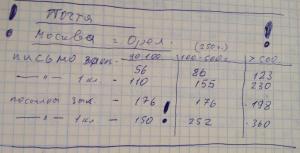 ! Почта !
Москва = Орел.
(250г.)
письмо заказ. - 20-100 100-500г > 500
56 86 123
—"— 1 кл. - 110 155 230
посылки зак. - 176 176 198
—"— 1 кл - 150! 252 360